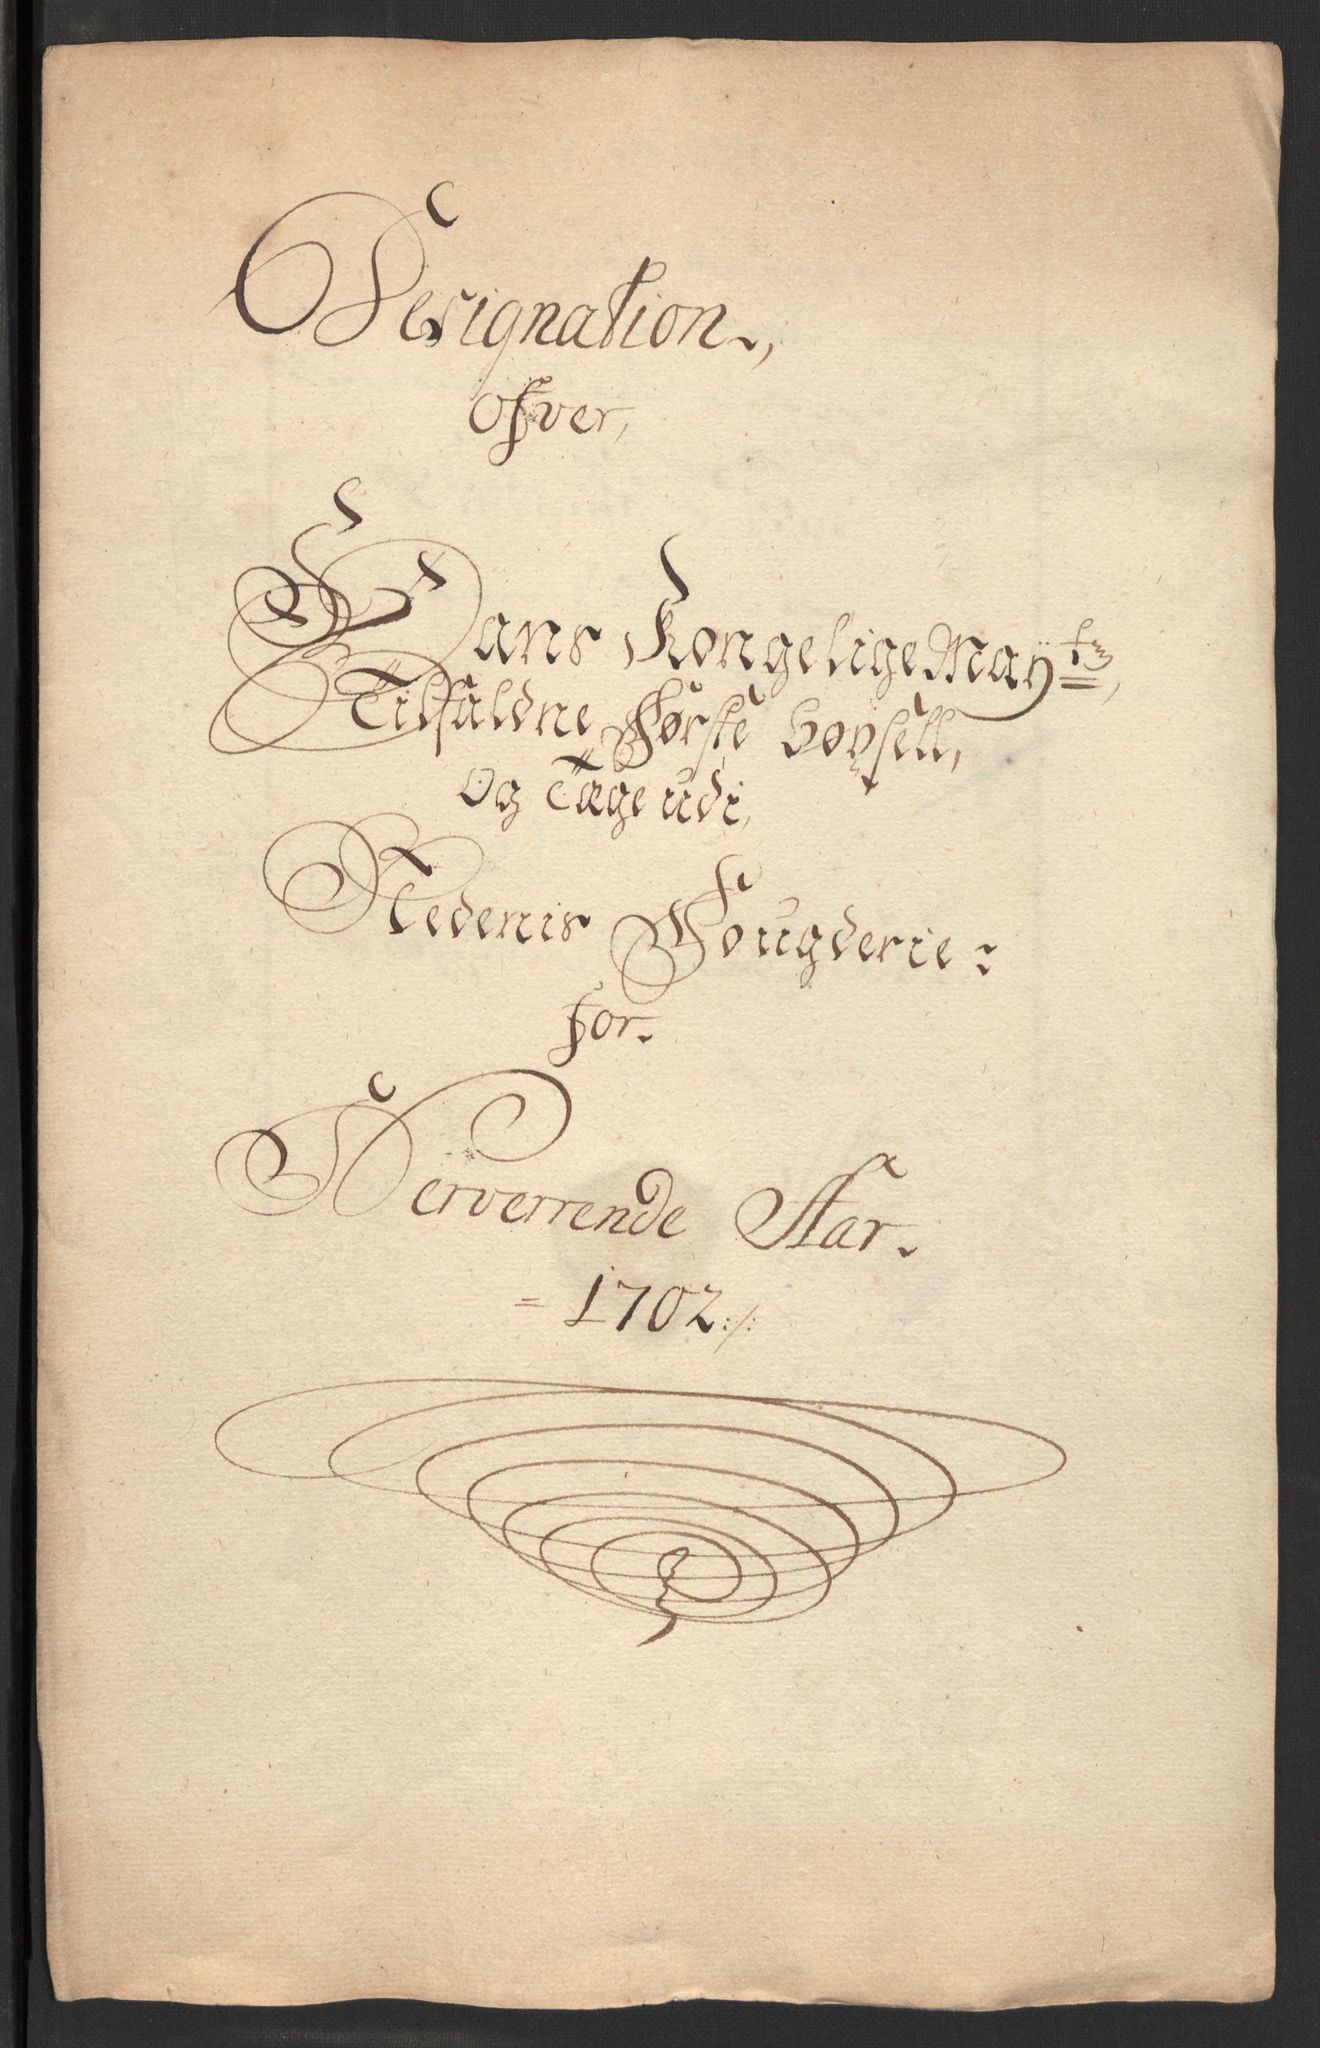 Designation,
ofver,
Hans Kongelige Maÿ:ts,
Tilfaldne Første boÿsell,
Og Tæge udi,
Nedenis Fougderie:
for.
Nerverrende Aar.
= 1702:/: